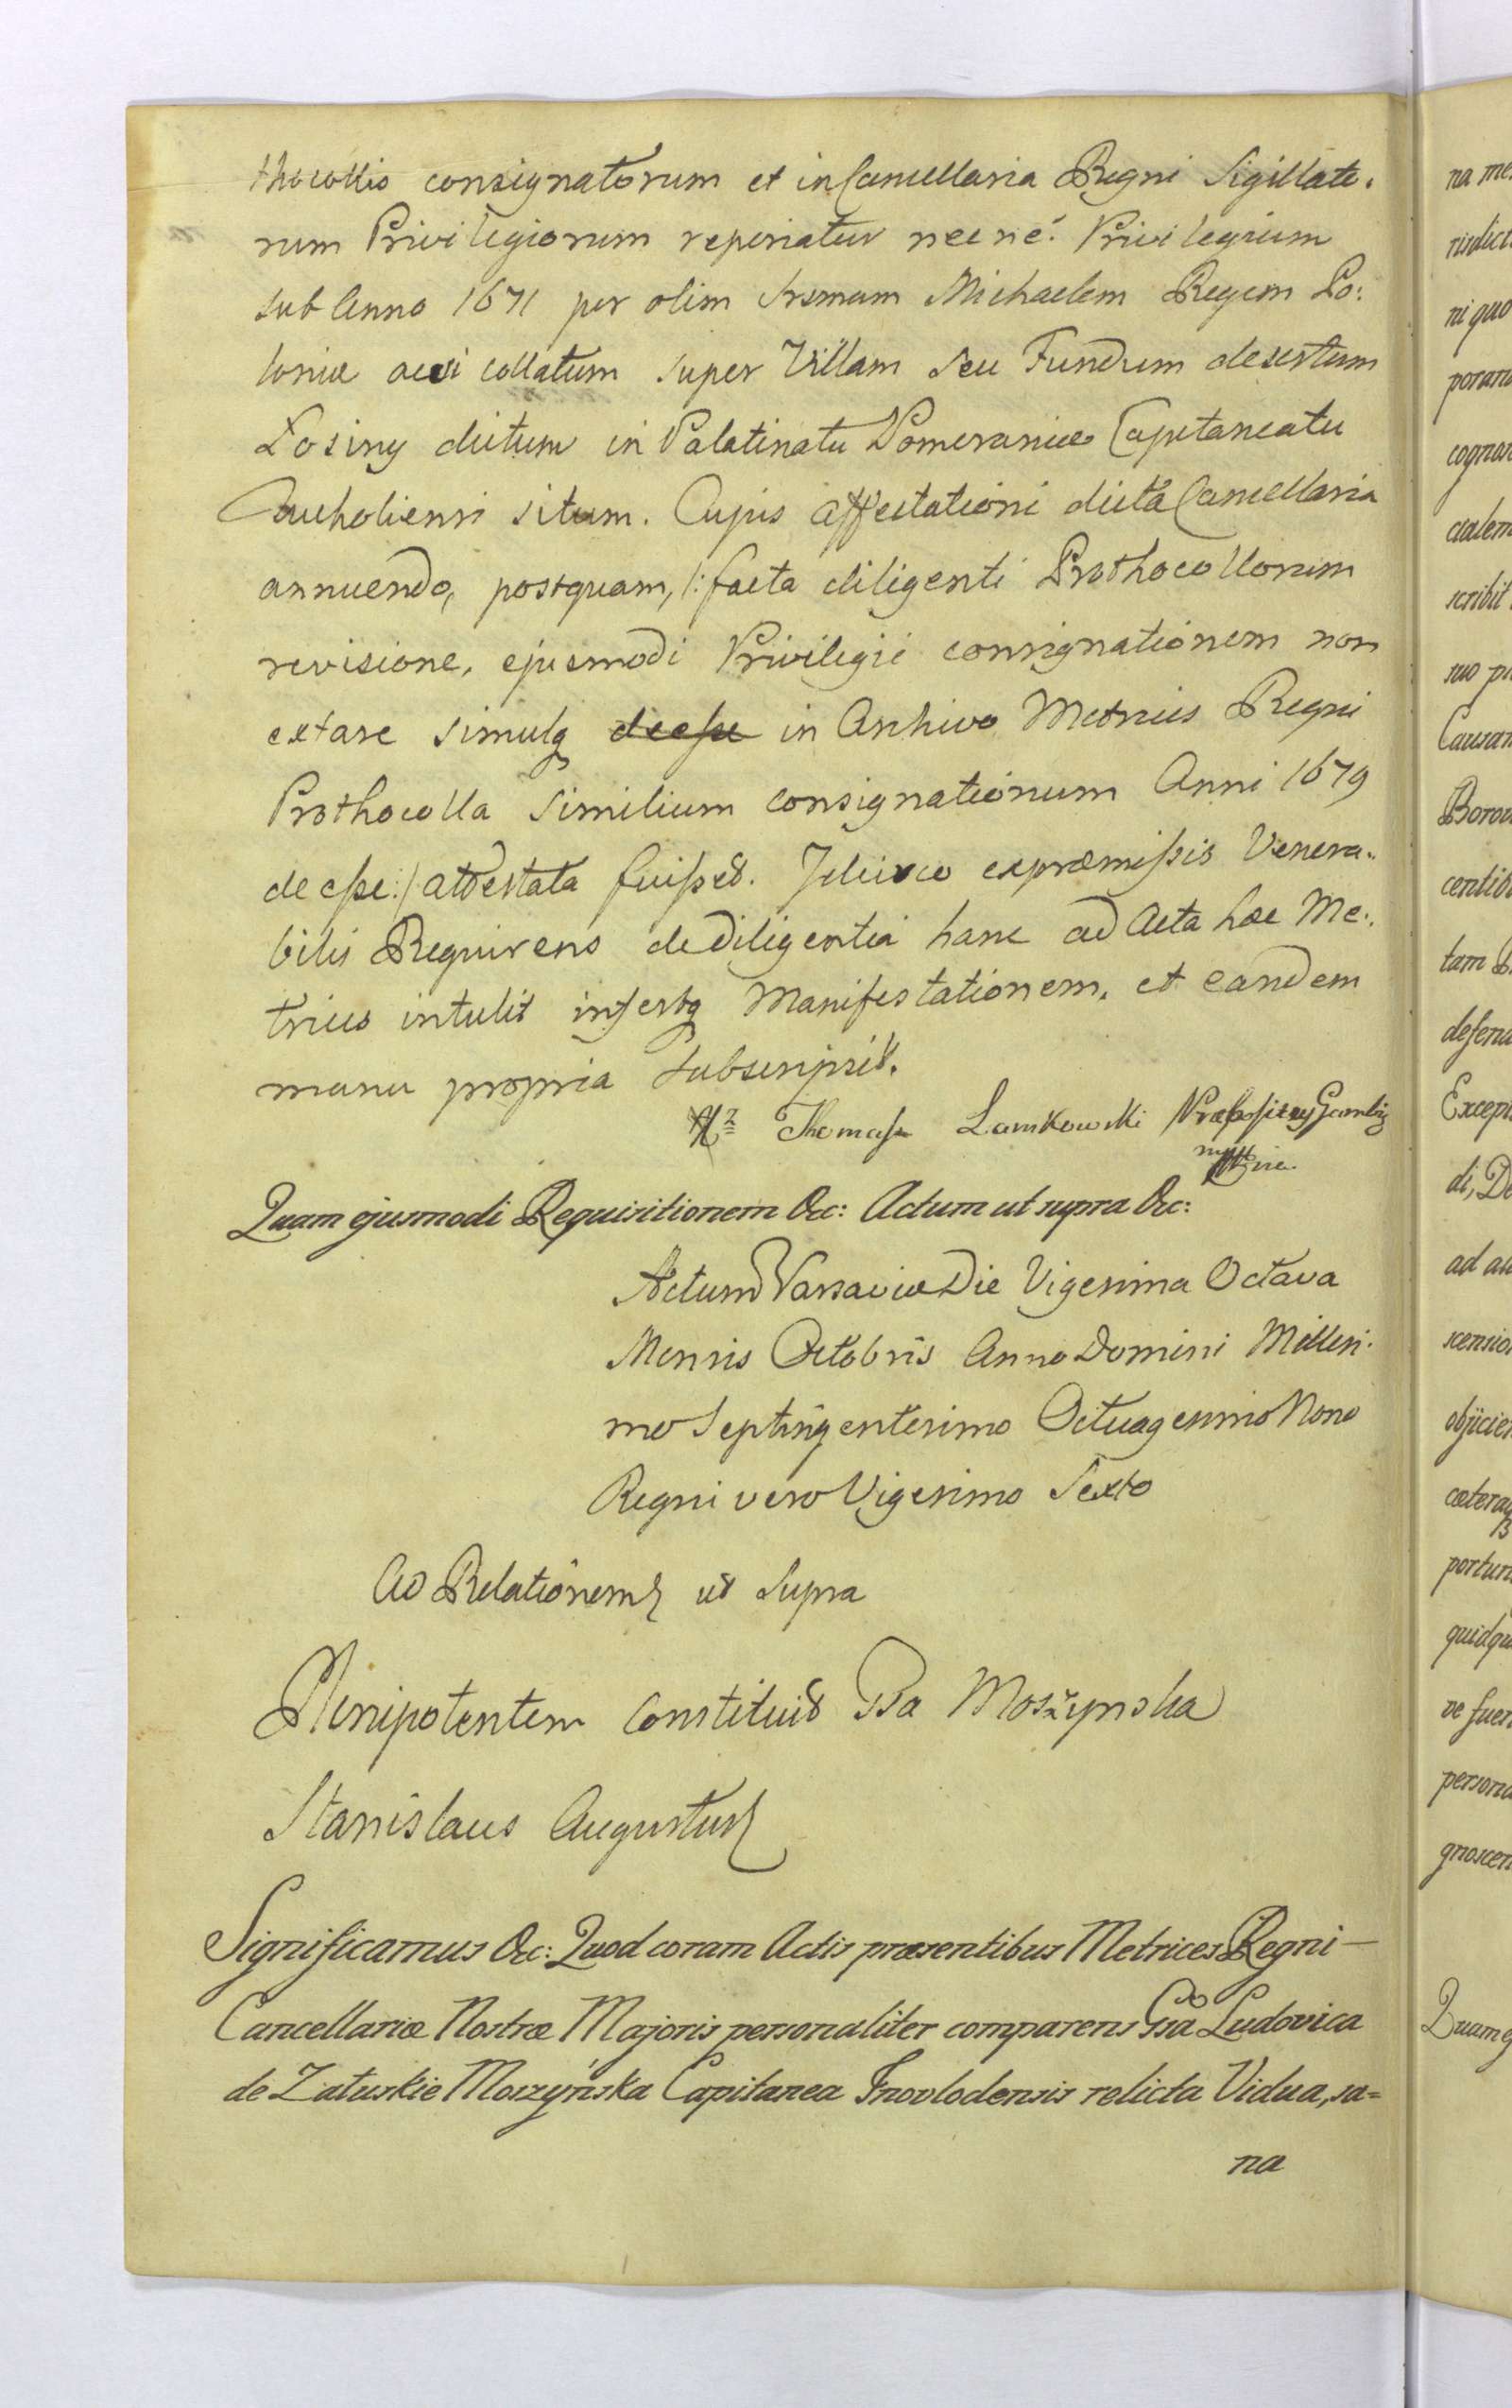 thocollis consignatorum et in Cancellaria Regni Sigillato.
rum Privilegiorum reperiatur nec ne? Privilegium
sub Anno 1671 per olim Srsmum Michaelem Regem Po:
loniæ aevi collatum super Villam seu Fundum desertum
Łosiny dictum in Palatinatu Pomeraniæ Capitaneatu
Tucholiensi situm. Cujus affectationi dictâ Cancellaria
annuendo, postquam, /: facta diligenti Prothocollorum
revisione, ejusmodi Privilegii consignationem non
extare simulq deesse in Archivo Metrices Regni
Prothocolla Similium consignationum Anni 1679
deesse :/ attestata fuisset. Idcirco expræmissis Venera..
bilis Requirens de Diligentia hanc ad Acta hæc Me:
trices intulit inseritq Manifestationem, et eandem
manu propria Subscripsit.
Xz Thomasz Lamkowski Præpositus
Quam ejusmodi Requisitionem &c: Actum ut supra &c:
Actum Varsaviæ Die Vigesima Octava
Mensis Octobris Anno Domini Millesi.
mo Septingentesimo Octuagesimo Nono
Regni vero Vigesimo Sexto
Ad Relationem ut Supra
Plenipotentem Constituit Gsa Moszynska
Stanislaus Augustus
Significamus &c: Quod coram Actis præsentibus Metrices Regni —
Cancellariæ Nostræ Majoris personaliter comparens Gsa Ludovica
de Załuskie Moszyńska Capitanea Inovlodensis relicta Vidua, sa=
na
na me
ni quo
porar
cognom
cialem
scribit
suo p
Causam
Borow
centib
tam B
defen
Except
di, De
ad au
scensio
objicien
cæteraq
portun
quidqu
ve fuer
persona
gnoscen
Quam e